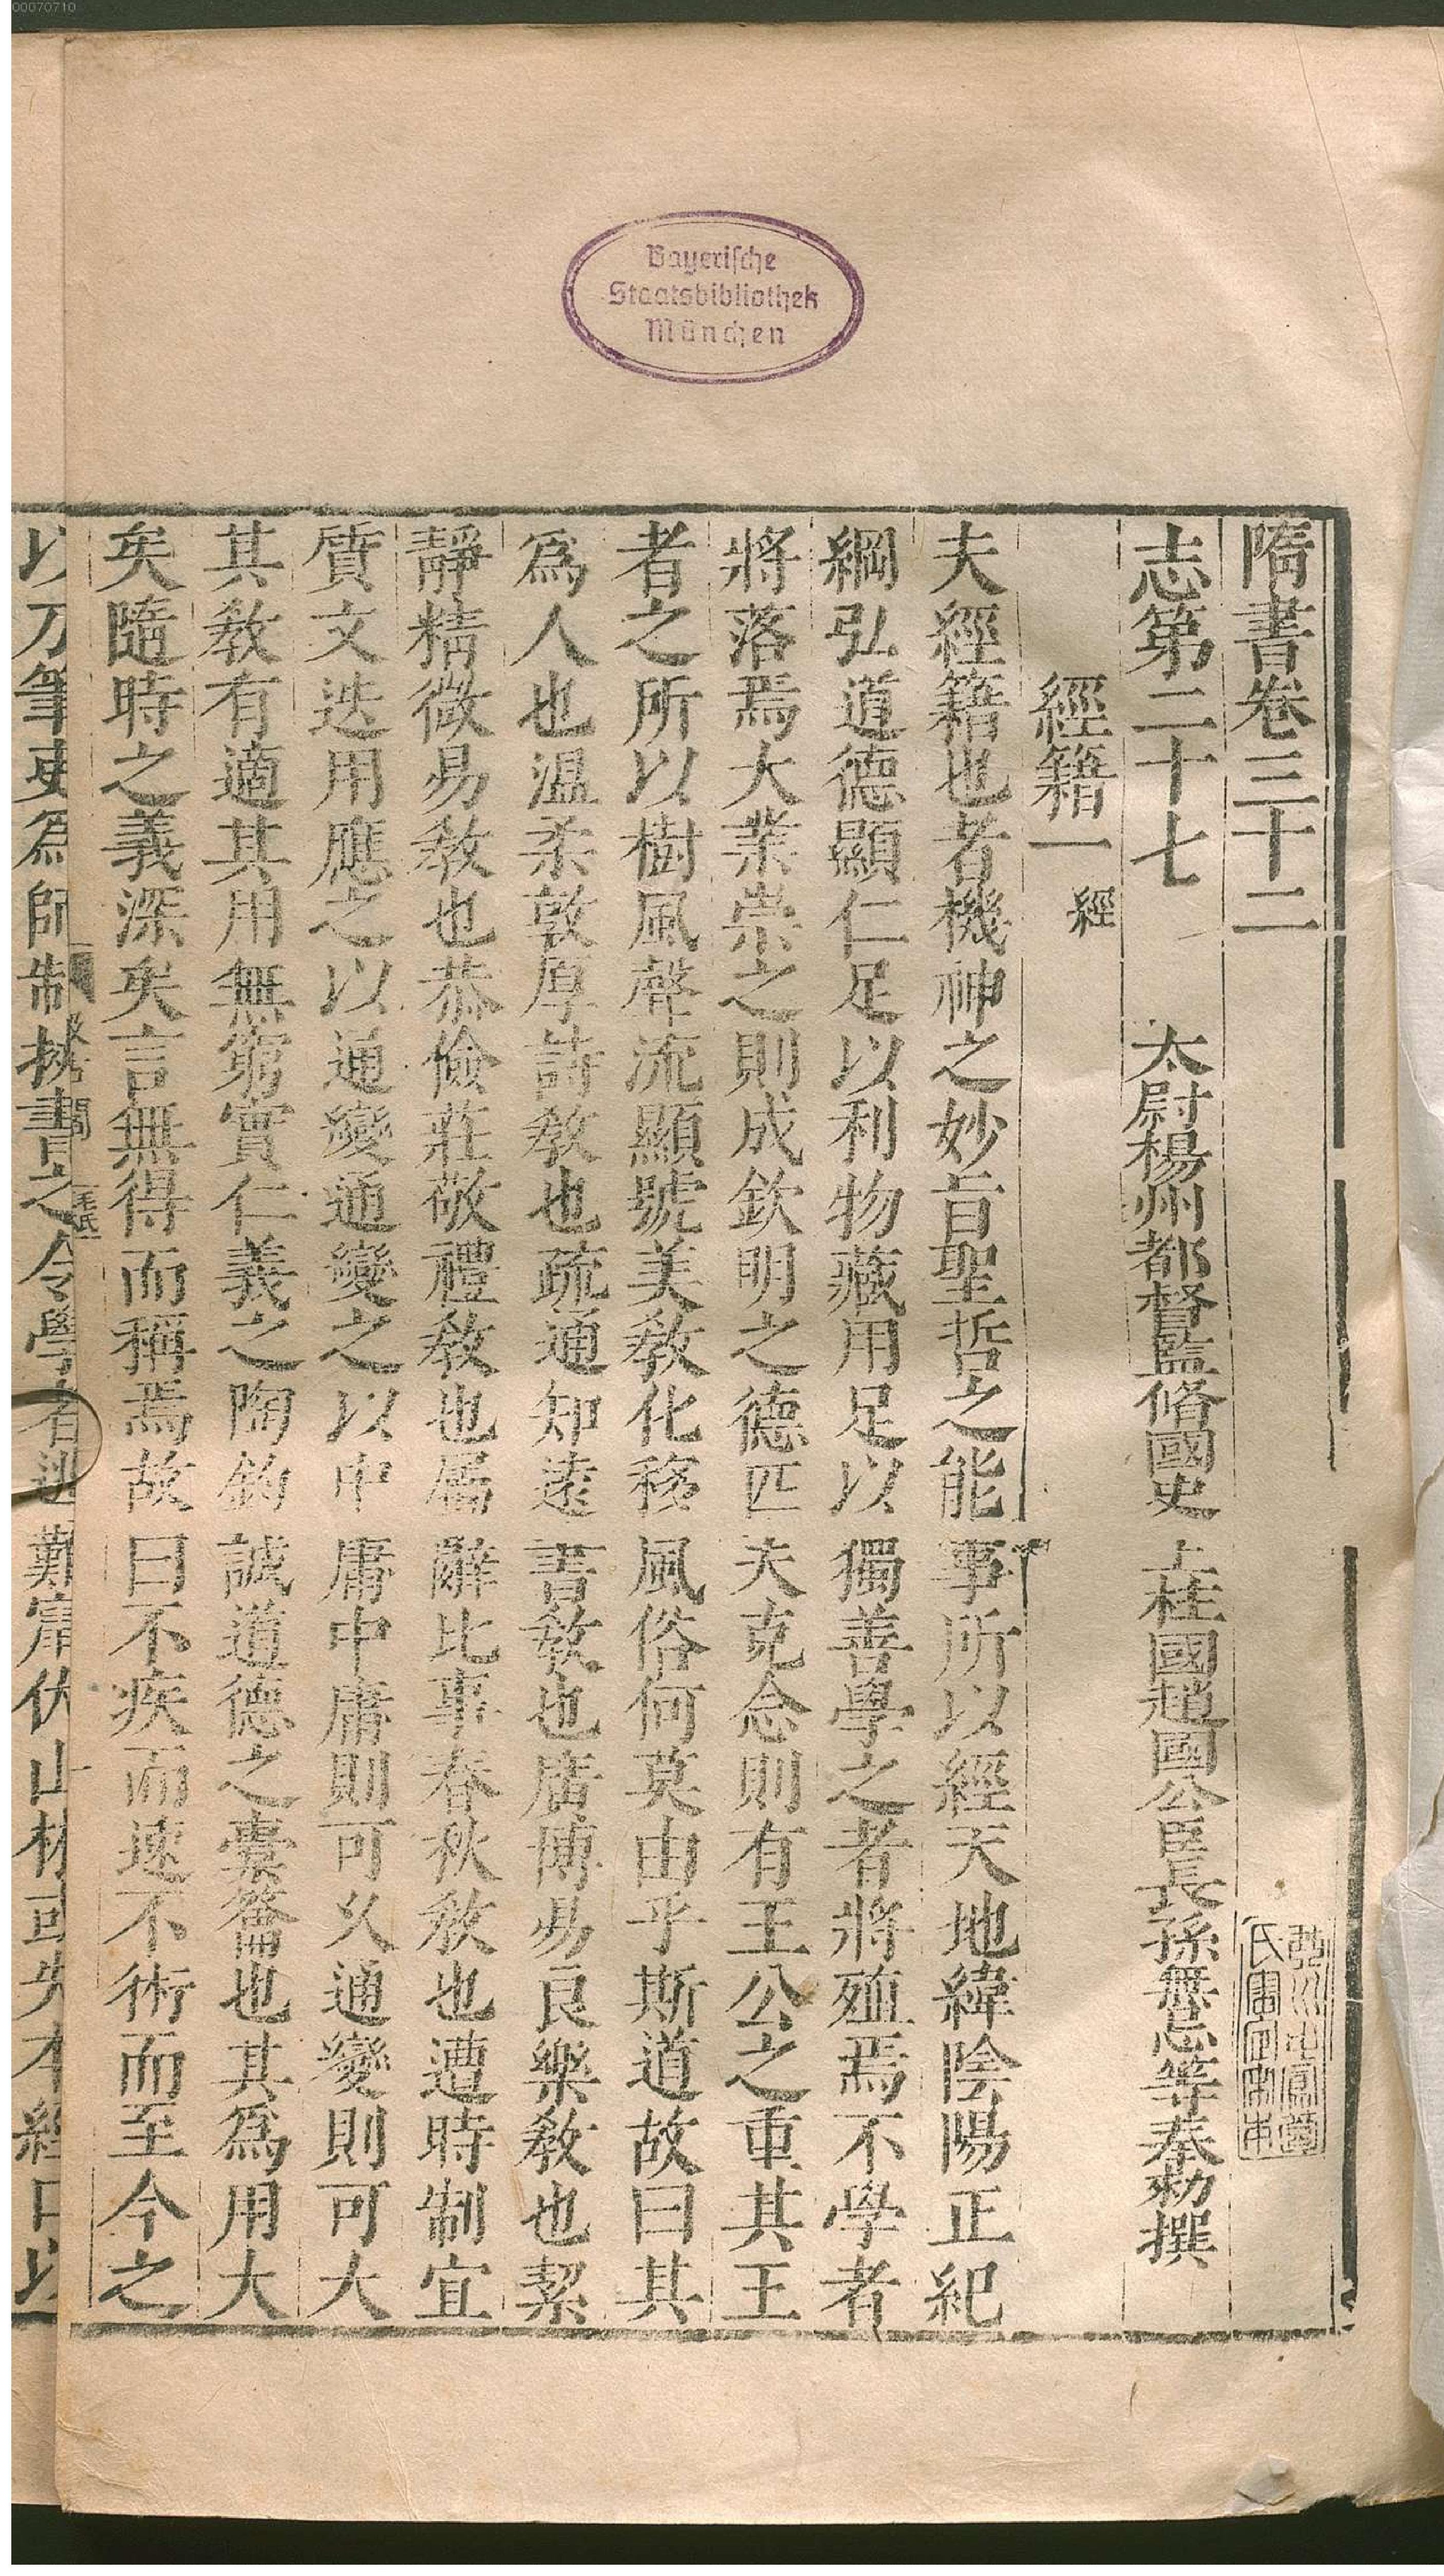 00070710
Bayerische
Staatsbibliothek
München
隋書卷三十二
志第二十七 太尉楊州都督監脩國史上柱國趙國公臣長孫無忌等奉勑撰
經籍一 經
夫經籍也者機神之妙旨聖哲之能事所以經天地緯陰陽正紀
綱弘道德顯仁足以利物藏用足以獨善學之者將殖焉不學者
將落焉大業崇之則成欽明之德匹夫克念則有王公之重其王
者之所以樹風聲流顯號美敎化移風俗何莫由乎斯道故曰其
爲人也溫柔敦厚詩敎也疏通知遠書敎也廣博易良樂敎也絜
靜精微易敎也恭儉莊敬禮敎也屬辭比事春秋敎也遭時制宜
質文迭用應之以通變通變之以中庸中庸則可乆通變則可大
其敎有適其用無窮實仁義之陶鈞誠道德之橐籥也其爲用大
矣隨時之義深矣言無得而稱焉故曰不疾而速不術而至今之
以刀筆吏爲師制挾書之令學者逃難竄伏山林或失本經口以